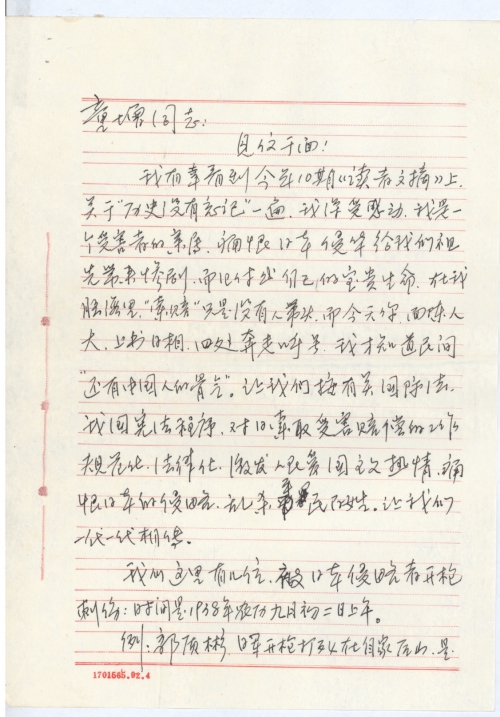 童增同志：
见信于面！
我有幸看到今年10期《读者文摘》上，
关于"历史没有忘记"一遍，我深受感动，我是一
个受害者的亲属，痛恨日军侵华给我们祖
先带来惨剧，而且付出自己的宝贵生命，在我
脑海里，"索赔"只是没有人带头，而今天你
人
大，上书日相，四处奔走呼号，我才知道民间
"还有中国人的骨气"。让我们按有关国际法，
我国宪法程序，对日索取受害赔偿的工作
规范化，法律化，激发人民爱国主义热情，痛
恨日军的侵略，乱杀民百姓。让我们
一代一代相传。
我们这里有几位，被日军侵略者开枪
刺伤：时间是1938年农历九月初二日上午。
例：郭 彬，日军开枪打死在自家后山，是
1701565.92.4